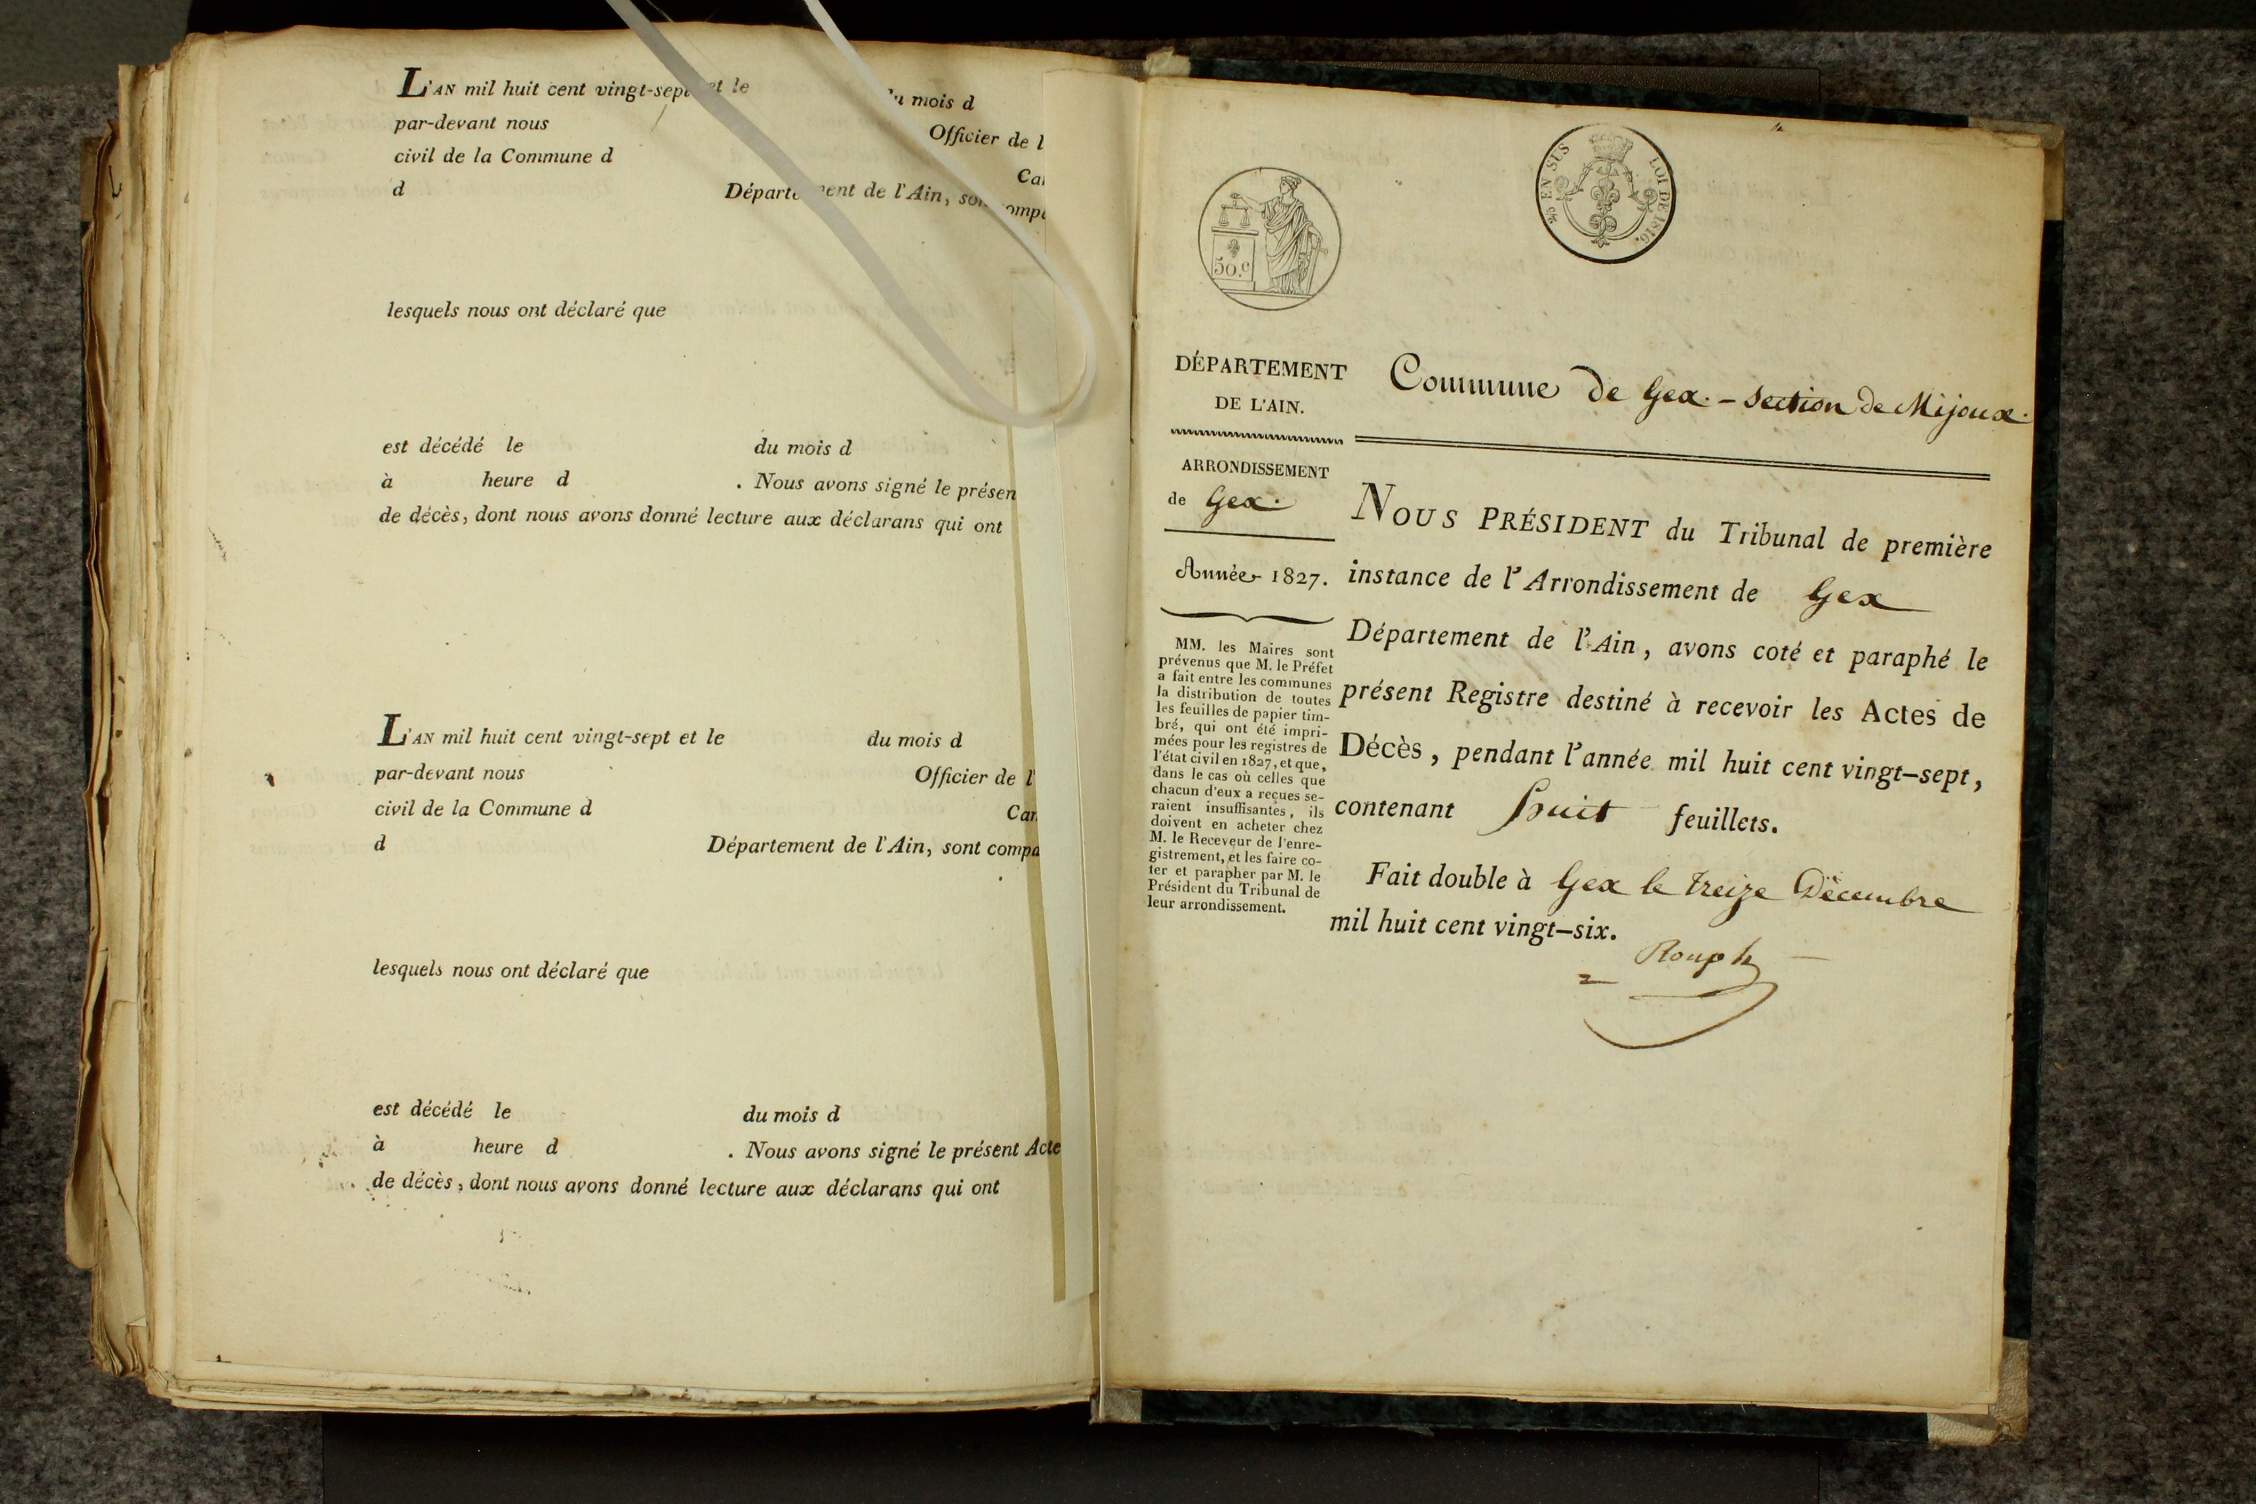 L'AN mil huit cent vingt-sept et le du mois d
par-devant nous Officier de l
civil de la Commune d
d Département de l'Ain, sont
lesquels nous ont déclaré que
est décédé le du mois d
à heure d . Nous avons signé le présen
de décès, dont nous avons donné lecture aux déclarans qui ont
L'AN mil huit cent vingt-sept et le du mois d
par-devant nous Officier de l'
civil de la Commune d
d Département de l'Ain, sont compa
lesquels nous ont déclaré que
est décédé le du mois d
à heure d . Nous avons signé le présent Acte
de décès, dont nous avons donné lecture aux déclarans qui ont
50.c
EN SUS
LOI DE 1816.
DÉPARTEMENT
DE L'AIN.
ARRONDISSEMENT
de Gex.
Année 1827.
MM. les Maires sont
prévenus que M. le Préfet
a fait entre les communes
la distribution de toutes
les feuilles de papier tim-
bré, qui ont été impri-
mées pour les registres de
l'état civil en 1827, et que,
dans le cas où celles que
chacun d'eux a reçues se-
raient insuffisantes, ils
doivent en acheter chez
M. le Receveur de l'enre-
gistrement, et les faire co-
ter et parapher par M. le
Président du Tribunal de
leur arrondissement.
Commune de Gex. - Section de Mijoux.
NOUS PRÉSIDENT du Tribunal de première
instance de l'Arrondissement de Gex
Département de l'Ain, avons coté et paraphé le
présent Registre destiné à recevoir les Actes de
Décès, pendant l'année mil huit cent vingt-sept,
contenant huit feuillets.
Fait double à Gex le treize Décembre
mil huit cent vingt-six.
Rouph